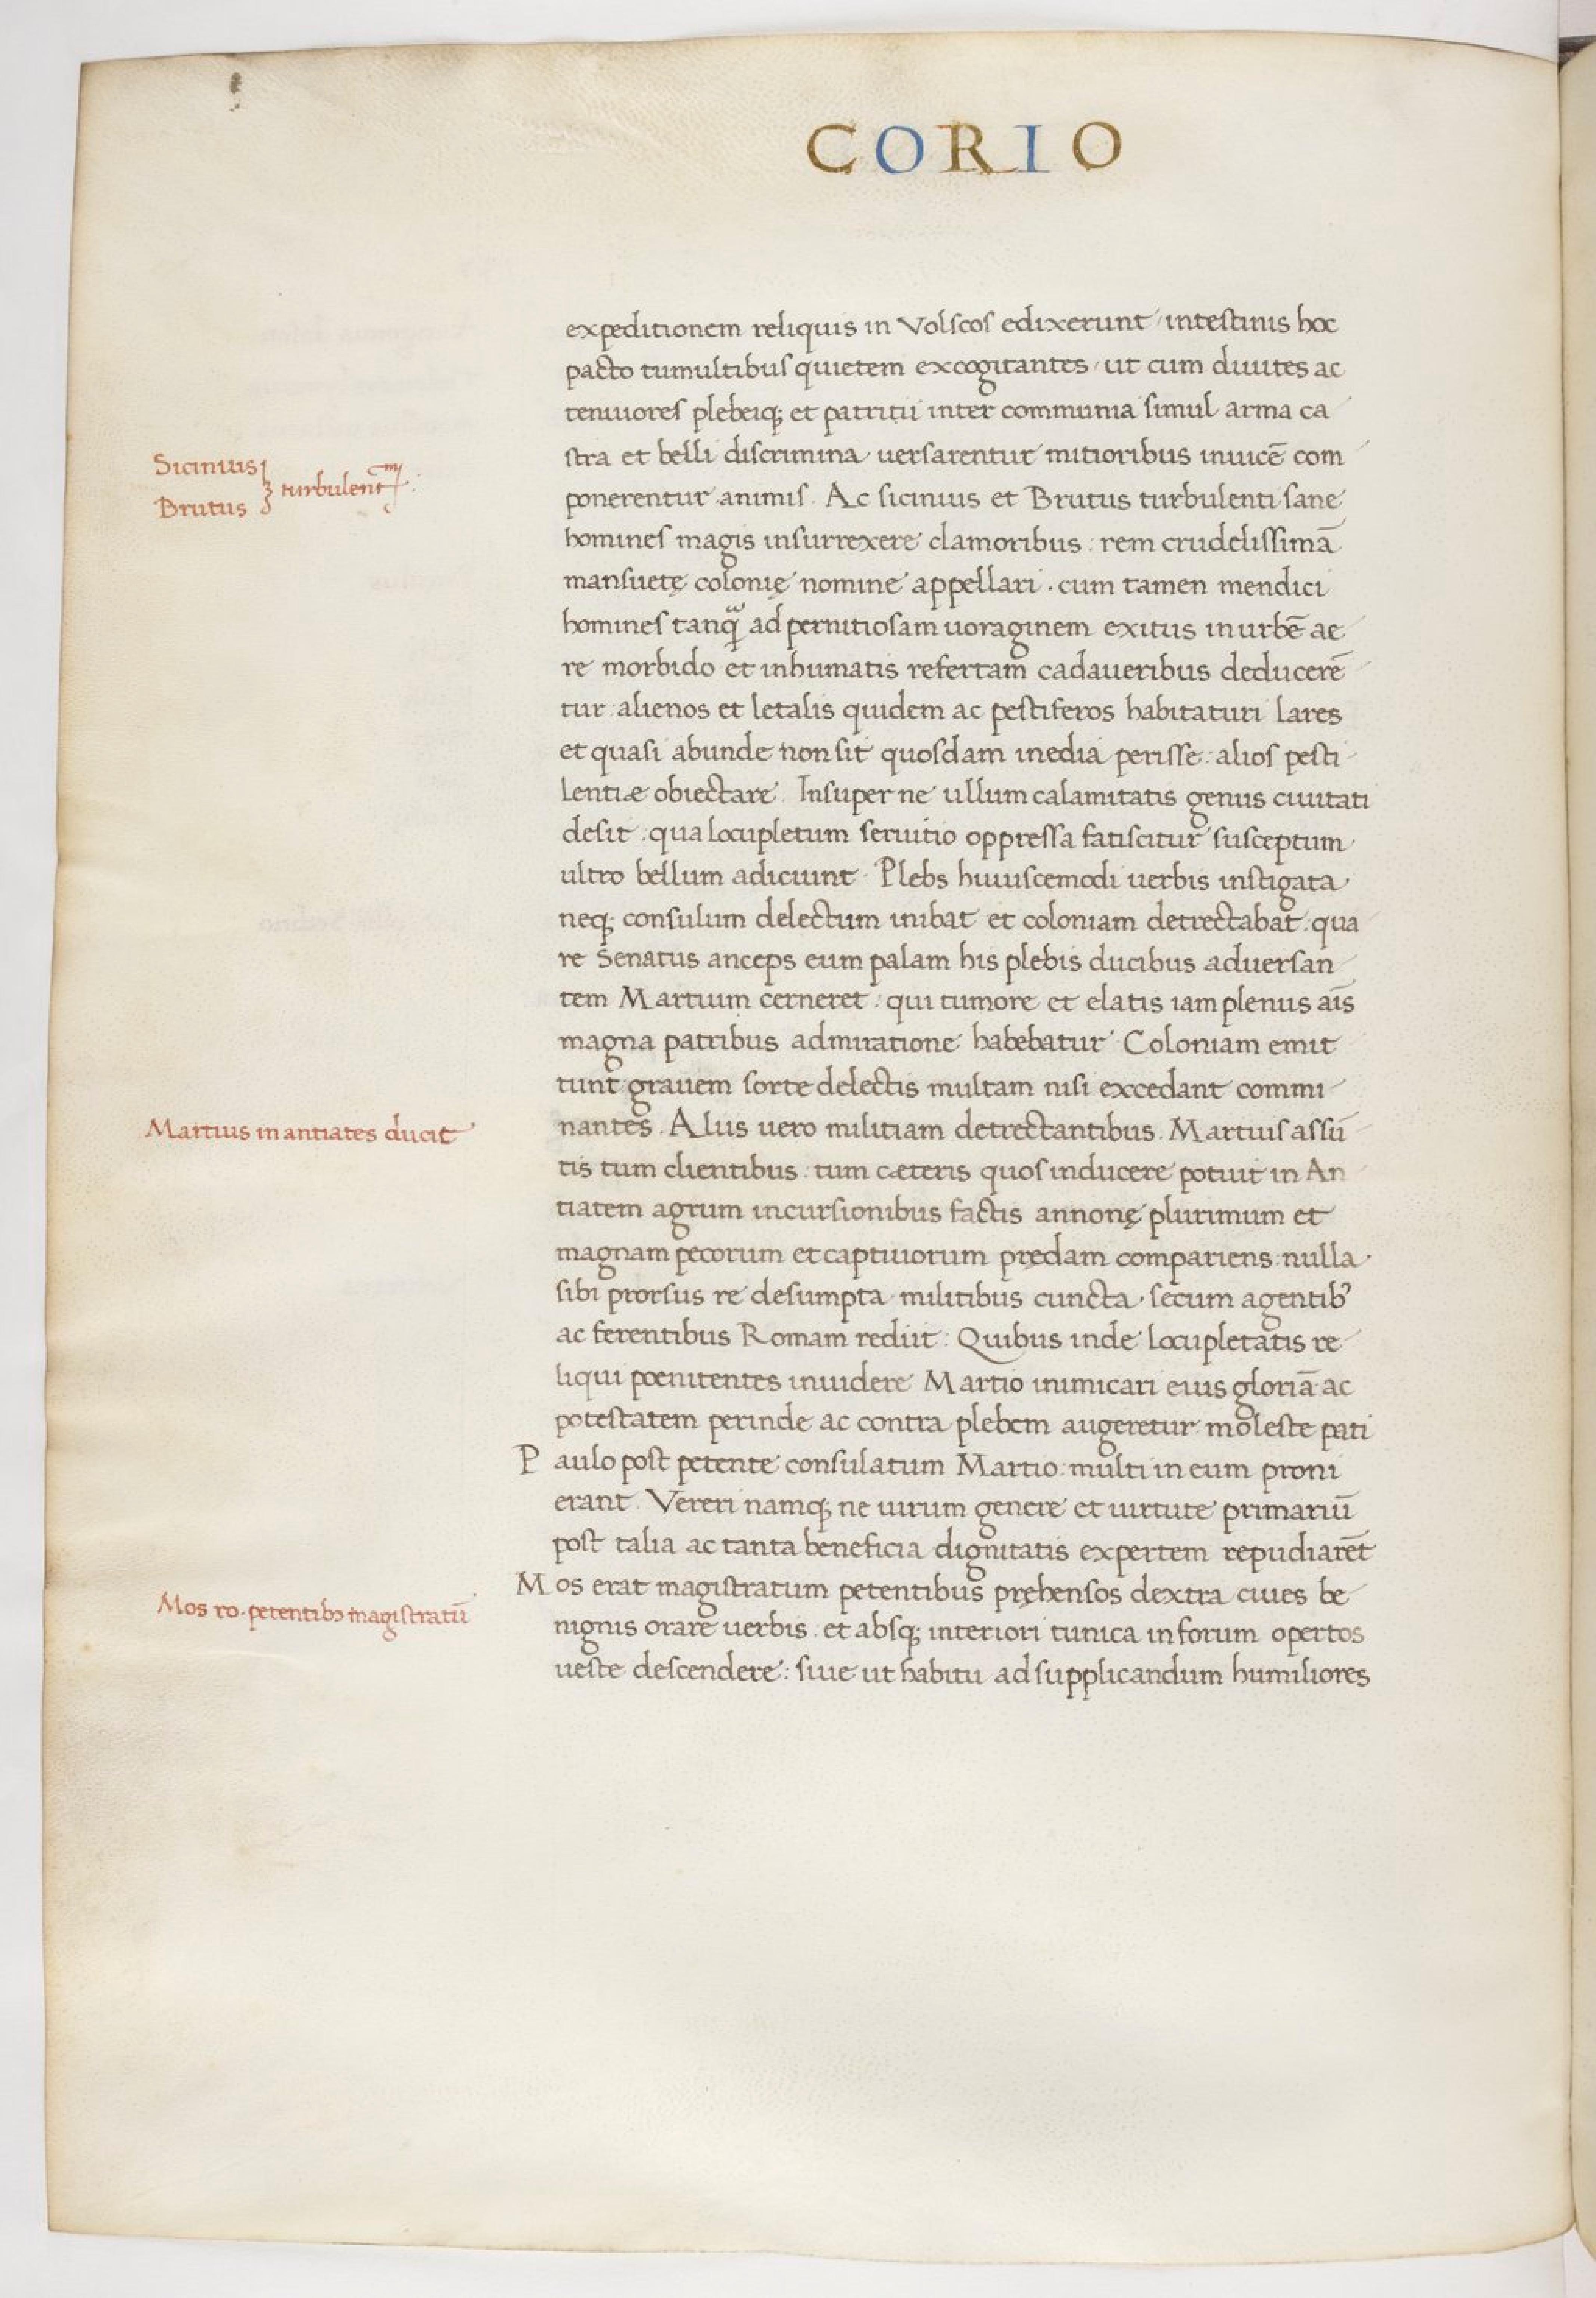 CORIO
expeditionem reliquis in Volscos edixerunt, intestinis hoc
pacto tumultibus quietem excogitantes, ut cum diuites ac
tenuiores plebeiq; et patritii inter communia simul arma ca
stra et belli discrimina uersarentur mitioribus inuicē com
Sicinius
Brutus } turbulentm̃
ponerentur animis. Ac sicinius et Brutus turbulenti sane
homines magis insurrexere clamoribus: rem crudelissimā
mansuetę colonię nomine appellari. cum tamen mendici
homines tanq̃ ad pernitiosam uoraginem exitus in urbē ae
re morbido et inhumatis refertam cadaueribus deducerē
tur: alienos et letalis quidem ac pestiferos habitaturi lares
et quasi abunde non sit quosdam inedia perisse: alios pesti
lentiæ obiectare. Insuper ne ullum calamitatis genus ciuitati
desit: qua locupletum seruitio oppressa fatiscitur susceptum
ultro bellum adiciunt. Plebs huiuscemodi uerbis instigata
neq; consulum delectum inibat et coloniam detrectabat: qua
re Senatus anceps eum palam his plebis ducibus aduersan
tem Martium cerneret: qui tumore et elatis iam plenus aīs
magna patribus admiratione habebatur. Coloniam emit
tunt grauem sorte delectis multam nisi excedant commi
Martius in antiates ducit
nantes. Aliis uero militiam detrectantibus. Martius assū
tis tum clientibus: tum cæteris quos inducere potuit in An
tiatem agrum incursionibus factis annonę plurimum et
magnam pecorum et captiuorum prędam compariens: nulla
sibi prorsus re desumpta militibus cuncta secum agentib'
ac ferentibus Romam rediit: Quibus inde locupletatis re
liqui poenitentes inuidere Martio inimicari eius gloriā ac
potestatem perinde ac contra plebem augeretur moleste pati
Paulo post petente consulatum Martio: multi in eum proni
erant. Vereri namq; ne uirum genere et uirtute primariū
post talia ac tanta beneficia dignitatis expertem repudiarēt
Mos ro. petentibɔ magistratū
Mos erat magistratum petentibus pręhensos dextra ciues be
nignis orare uerbis: et absq; interiori tunica in forum opertos
ueste descendere: siue ut habitu ad supplicandum humiliores